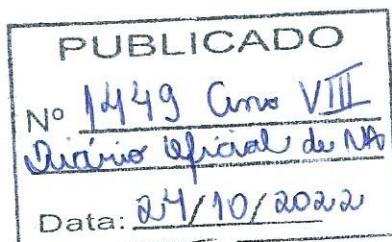 PUBLICADO
Nº 1449 Ano VIII
Diário Oficial de NA
Data: 24/10/2022